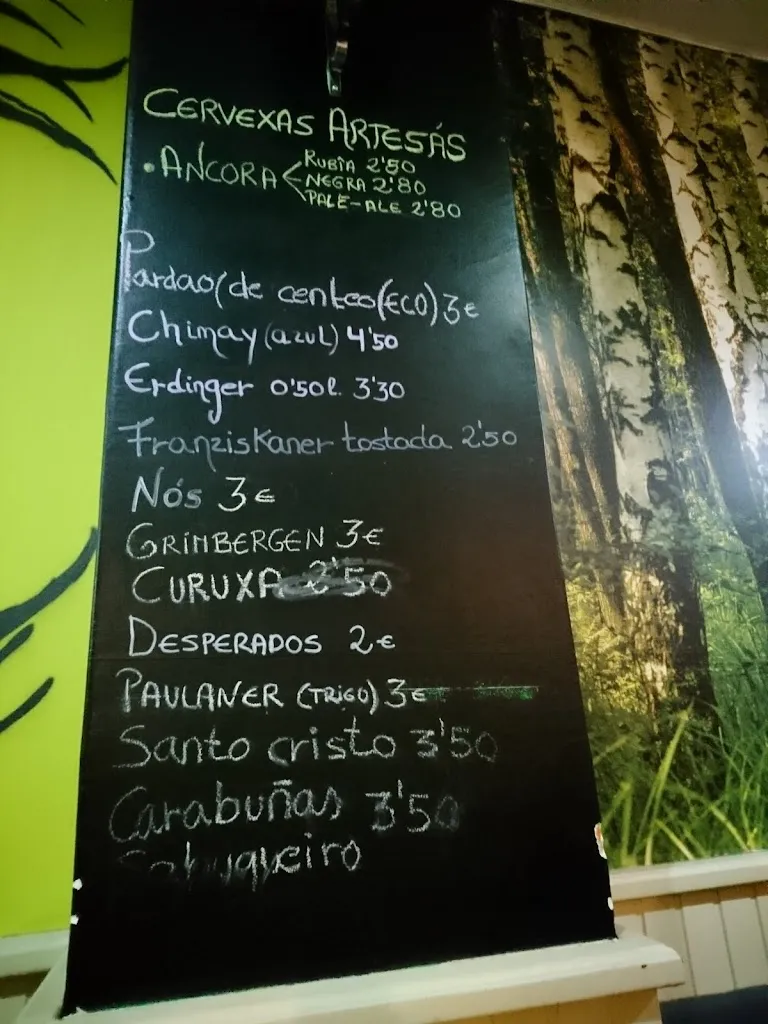 CERVEXAS ARTESÁS
. ANCORA < RUBIA 2'50
NEGRA 2'80
PALE-ALE 2'80
Pardao (de centeo (ECO) 3€
Chimay (azul) 4'50
Erdinger 0'50l. 3'30
Franziskaner tostada 2'50
Nós 3€
GRIMBERGEN 3€
CURUXA 2'50
DESPERADOS 2€
PAULANER (TRIGO) 3€
Santo cristo 3'50
Carabuñas 3'50